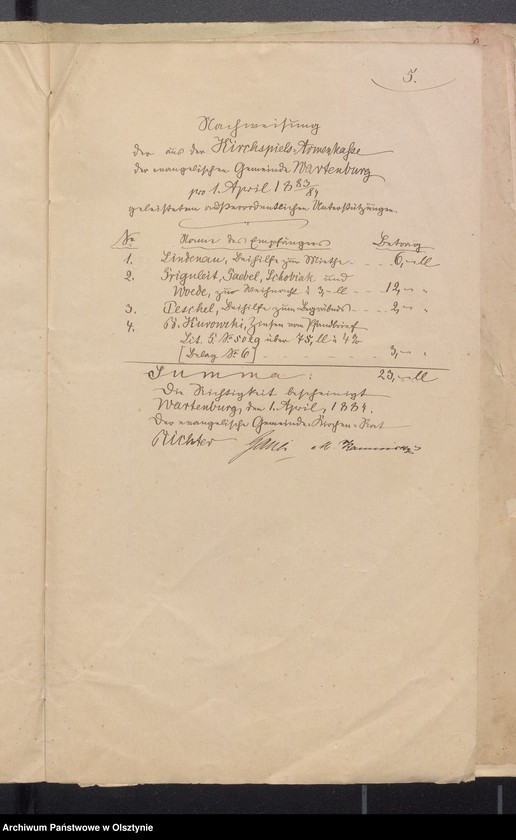 5.
Nachweisung
der aus der Kirchspiels-Armenkasse
der evangelischen Gemeinde Wartenburg
pro 1. April 1883/84
geleisteten außerordentlichen Unterstützungen.
No Name des Empfängers Betrag
1. Lindenau, Beihilfe zur Miethe 6,- M
2. Priguleit, Paebel, Schobiak und
Woede, zur Weihnacht à 3,- M 12,- "
3. Peschel, Beihilfe zum Begräbnis 2,- "
4. B. Kurowski, Zinsen vom Pfandbrief
Lit. über 75,- M à 4%
[Belag No 6] 3,- "
Summa: 23,- M
Die Richtigkeit bescheinigt
Wartenburg, den 1. April, 1884.
Der evangelische Gemeinde-Kirchen-Rat
Richter
Archiwum Państwowe w Olsztynie